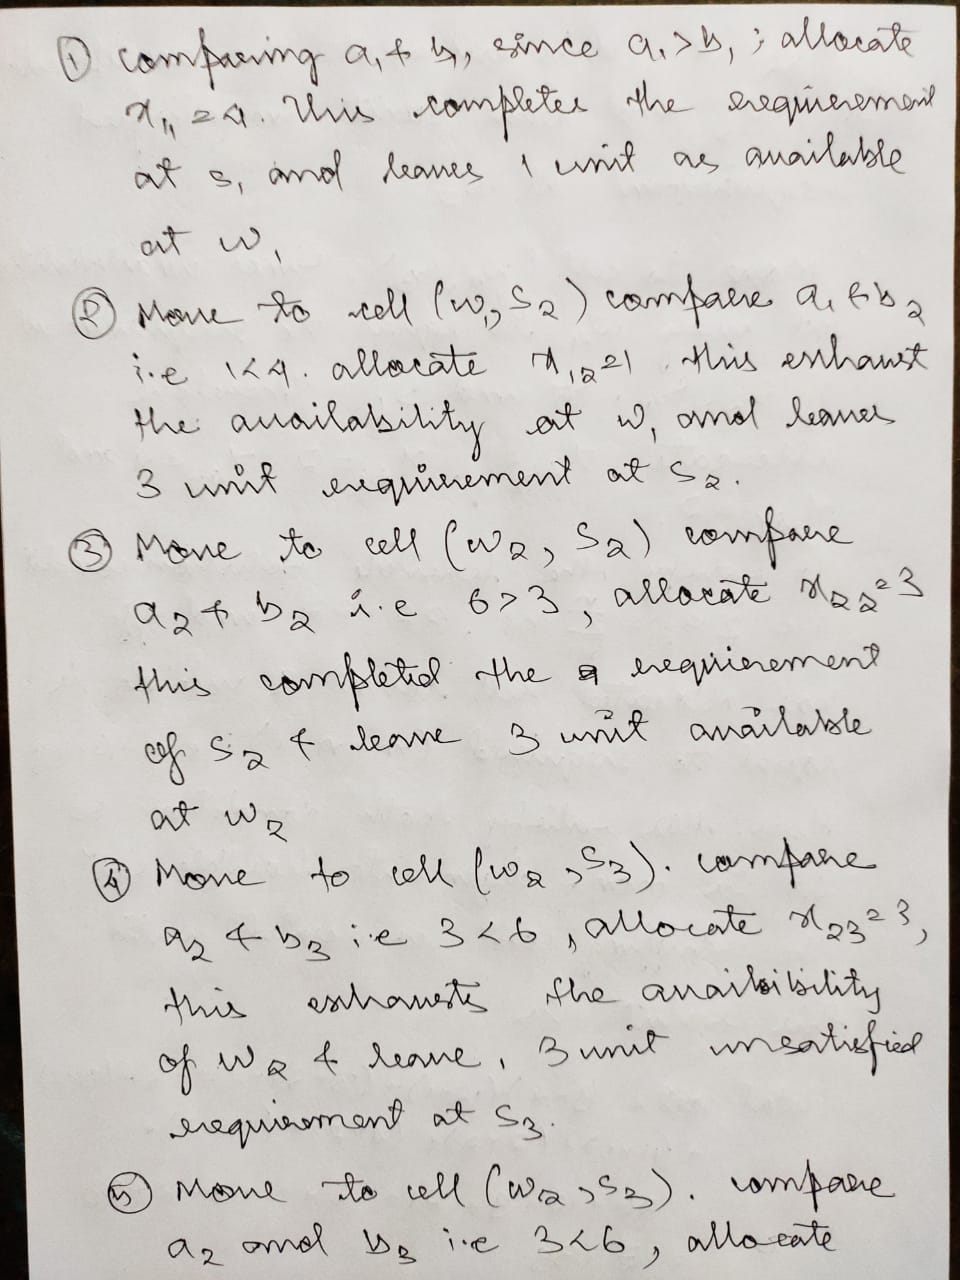 ① comparing a₁ & b₁, since a₁>b₁ ; allocate
x₁₁ = 4. This completes the requirement
at s₁ and leaves 1 unit as available
at w₁
② Move to cell (w₁, S₂) compare a₁ & b₂
i.e 1<4. allocate x₁₂=1. this exhaust
the availability at w₁ and leaves
3 unit requirement at S₂.
③ Move to cell (w₂, S₂) compare
a₂ & b₂ i.e 6>3, allocate x₂₂=3
this completed the requirement
of S₂ & leave 3 unit available
at w₂
④ Move to cell (w₂, S₃). compare
a₂ & b₃ i.e 3<6, allocate x₂₃=3,
this exhausts the availibility
of w₂ & leave, 3 unit unsatisfied
requirment at S₃.
⑤ Move to cell (w₂, S₃). compare
a₂ and b₃ i.e 3<6, allocate